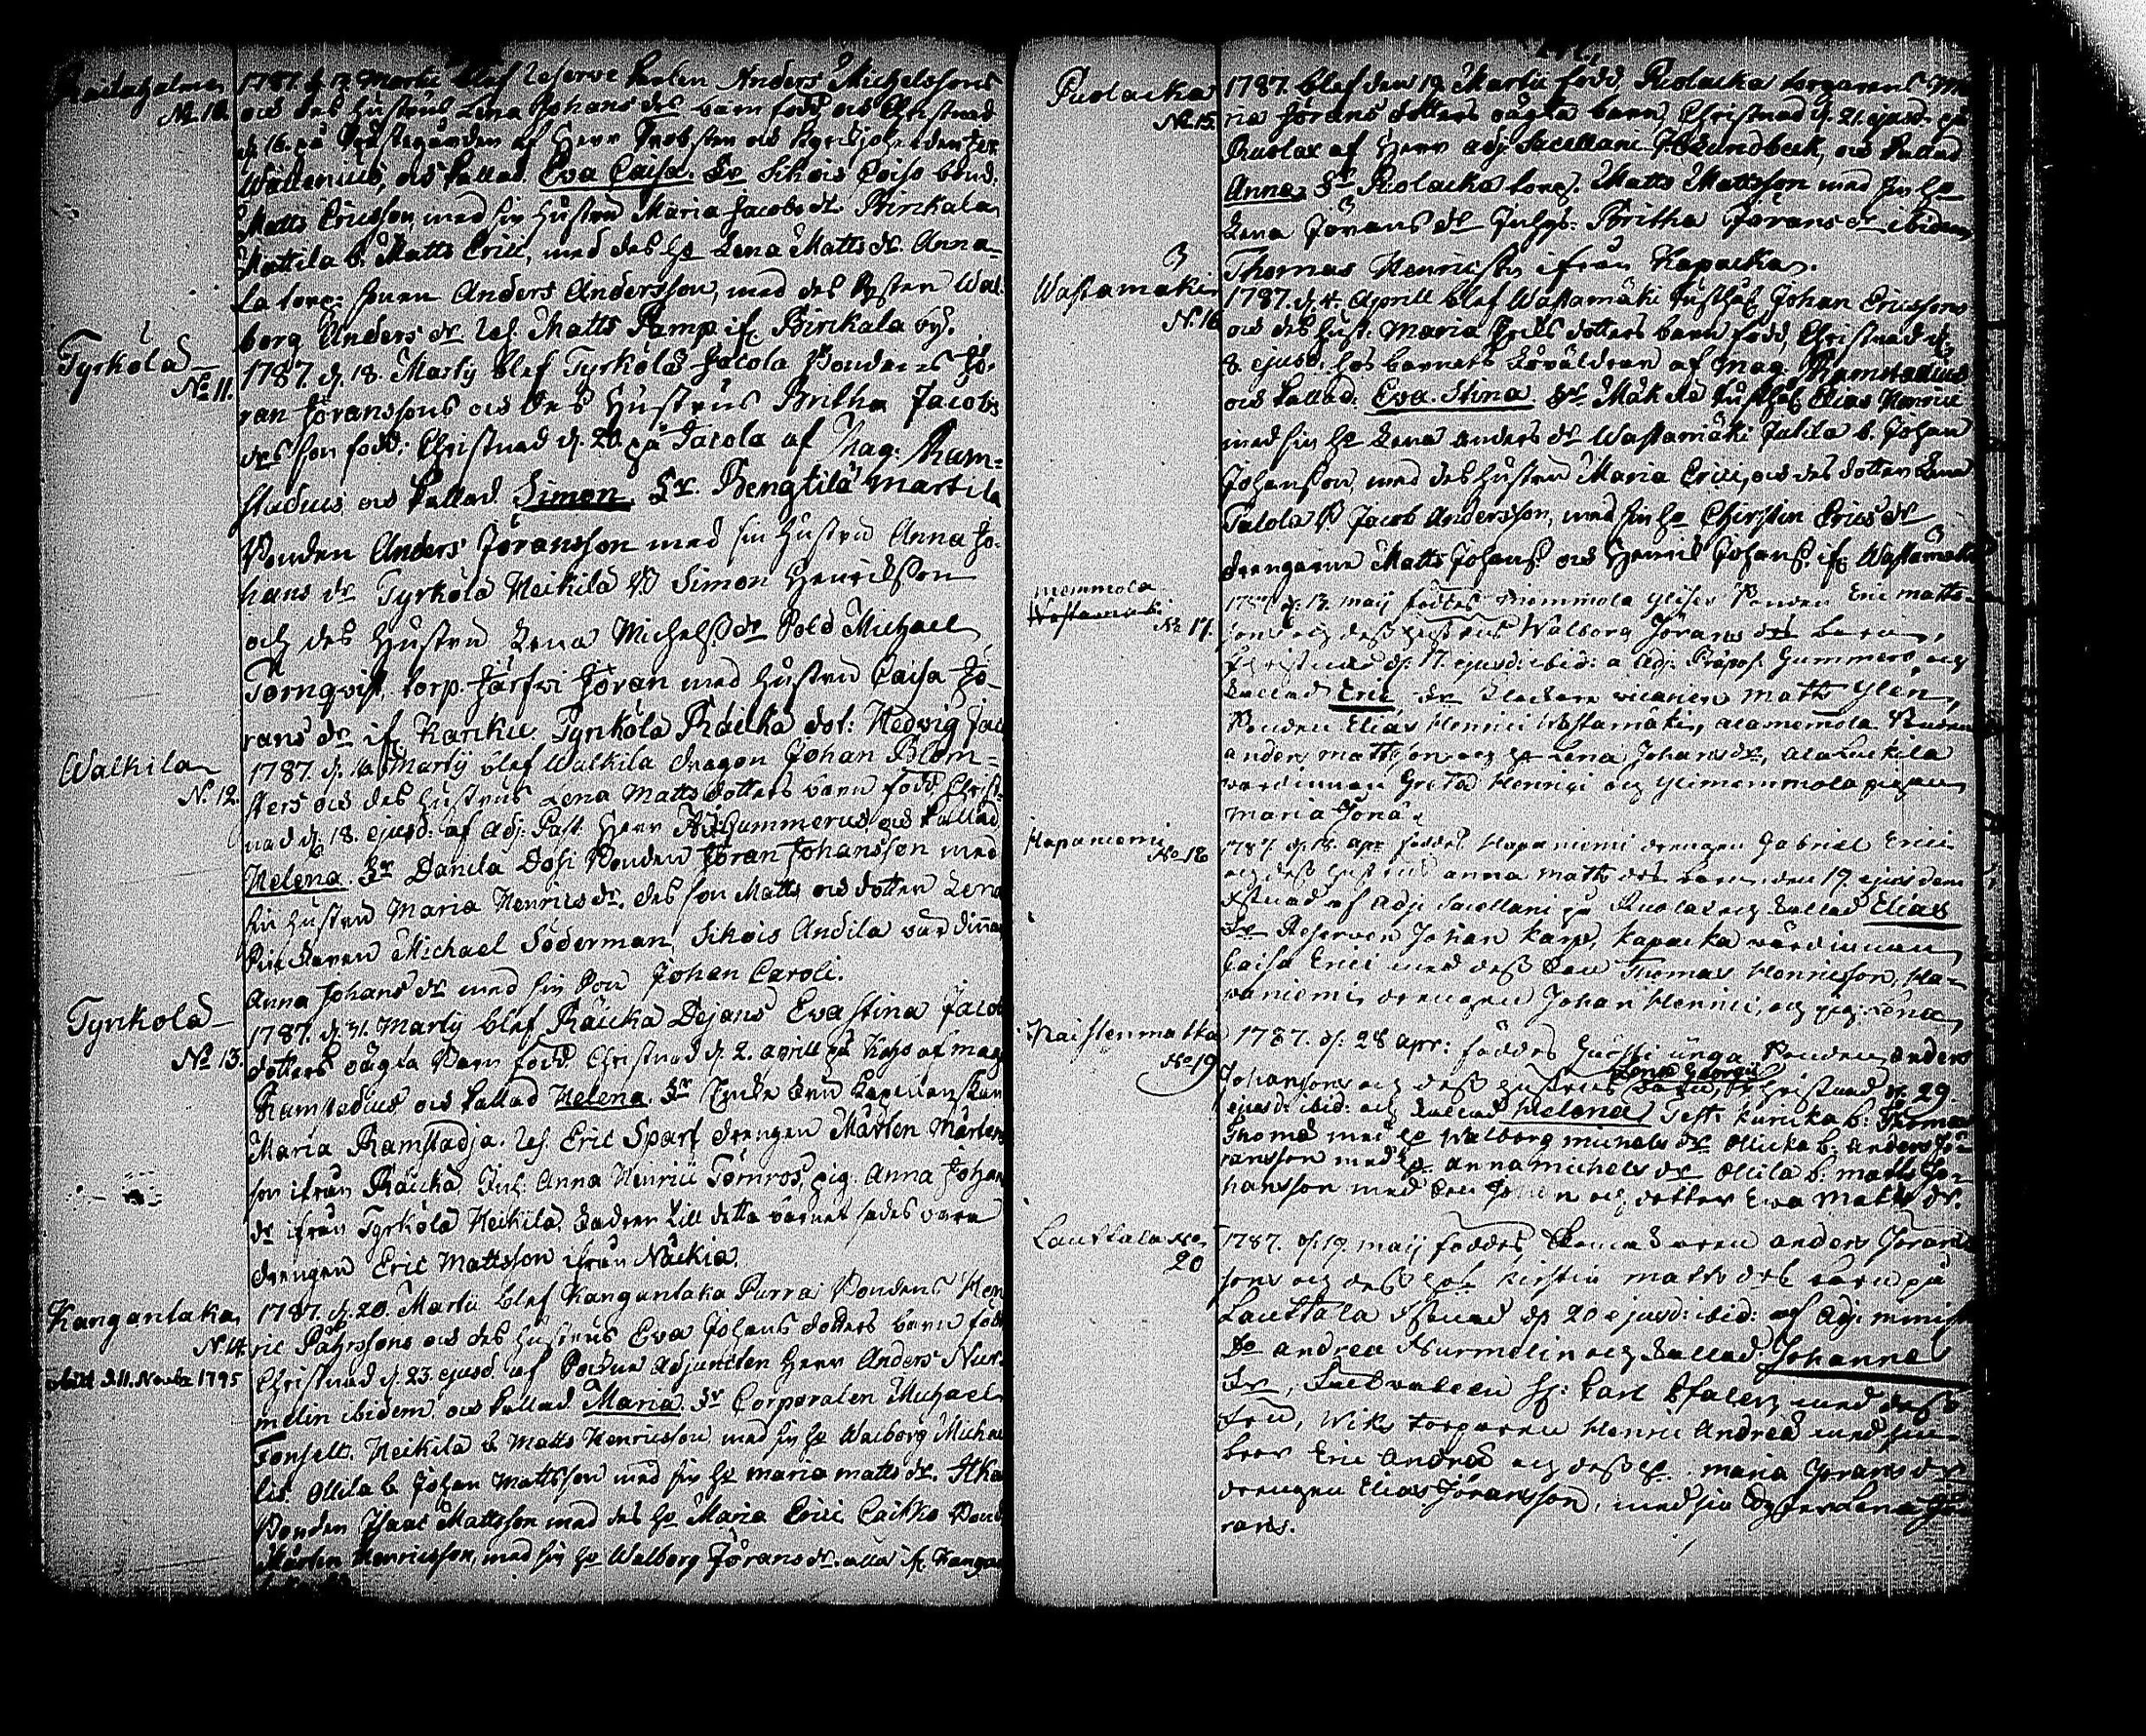 Raitahalme
No 10.
1787. d. 12 Martii blef Reserve Karlen Anders Michelssons
och des hustrus Lena Johans dr barn född och Christnad
d. 16. på Prästegården af Herr Probsten och Kyrckjoherden Jer
Wallenius, och kallad Eva Caisa. Fr Sikois Coiso bond.
Matts Ericsson, med sin hustru Maria Jacobs dr Birckala
Mattila b. Matts Erici, med des ho Lena Matts dr Anna-
la torp: sonen Anders Andersson, med des Syster Wal-
borg Anders dr Res. Matts Kamp if. Birckala by.
Tyrkölä
No 11.
1787. d. 18. Martij blef Tyrkölä Jacola Bondens Jö-
ran Joranssons och des Hustrus Britha Jacobs
drs son född: Christnad d. 20 på Jacola af Mag: Ram-
stadius och kallad Simon. Fr. Bengtilä Martila
Bonden Anders Joransson med sin hustru Anna Jo-
hans dr Tyrkölä Heikilä B Simon Henricsson
och des Hustru Lena Michelss dr Sold Michael
Törnqvist, torp. Järfvi Jöran med hustru Caisa Jö-
rans dr if Karcku Tyrkölä Räickä dot: Hedvig Jac
Walkila
N. 12.
1787. d. 16 Martij blef Walkila dragon Johan Blom-
sters och des hustrus Lena Matts dotters barn född Christ-
nad d. 18. ejusd: af Adj. Past. Herr And: Gummerus, och kallad
Helena. Fr Danila Dosi Bonden Jöran Johansson med
sin hustru Maria Henrics dr. des son Matts och dotter Lena
Michael Söderman, Sikois Andila värdinnan
Anna Johans dr med sin Son Johan Caroli.
Tyrkölä
No 13.
1787. d. 31. Martij blef Räicka Dejans Eva Stina Jacobs
dotters oägta Barn född Christnad d. 2. aprill på af mag
Ramstadius och kallad Helena. Fr
Maria Ramstadja. Res. Eric Sparf drengen Mårten Mårtens
son ifrån Räickä, Inh. Anna Henrici Törnros, pig. Anna Johans
dr ifrån Tyrkölä Heikilä. Fadren till detta barnet sades vara
drengen Eric Mattsson ifrån Näckiä.
Kangantaka
N. 14.
d. 11. Novbr 1795
1787. d. 20. Martii blef Kangantaka Purra Bondens Hen
ric Påhrssons och des hustrus Eva Johans dotters barn född
Christnad d. 23. ejusd. af Sockne adjuncten Herr Anders Nur-
melin ibidem och kallad Maria. Fr Corporalen Michael
Fonsell. Heikilä b Matts Henricsson med sin ho Walborg Michae
lis. Ollila b Johan Mattsson med sin ho maria matts dr. Ilka
Bonden Isaac Mattsson med des ho Maria Erici Caitko Bond
Mårten Henricsson, med sin ho Walborg Jörans dr. alla if. Kangan
Puolacka
No 15.
1787. blef den 19 Martii född, Puolacka torparens Ma
ria Jörans dotters oägta barn Christnad d. 21. ejusd. på
Ruolax af Herr adj Sacellani Sundbeck, och kallad
Anna. Fr Puolacka torp. Matts Mattsson med sin ho
Lena Jörans dr Inhys: Britha Jörans dr ibidem
Thomas Henricss: ifrån Kapacka.
Wastamäki
N. 16
1787. d. 4. Aprill blef Wastamäki Johan Ericssons
och des hust: Maria Erics dotters barn född, Christnad d.
8 ejusd. hos barnets föräldrar af Mag. Ramstadius
och kallad: Eva Stina Fr. Mäkilä Elias Henrici
med sin ho Lena Anders dr Wastamäki Julila b. Johan
Johansson, med des hustru Maria Erici, och des dotter Lena
Talola B Jacob Andersson, med sin ho Chirstin Erics dr
drengarne Matts Johans: och Henric Johans: if Wastamäki
memmola
Wastamäki
No 17.
1787 d. 13. maij föddes Memmola Bonden Eric matts-
sons och dess hustrus Walborg Jörans drs barn,
Christnades d. 17. ejusd: ibid: a Adj. Præpos. Gummero, och
kallad Eric. Fr Klockare vicarien matts Glen,
Bonden Elias Henrici Wastamäki, alamemola Bonden
anders mattsson och ho Lena Johans dr, ala
värdinnan Greta Henrici och pigan
Maria Jona.
Hapaniemi
No 18
1787 d. 15. apr. föddes Hapaniemi drengen Gabriel Erici
och dess hustrus anna matts drs barn den 17. ejusdem
xstnad af Adj: Sacellani på Ruolax och kallad Elias
Fr Reserven Johan Karp, Kapacka värdinnan
Caisa Erici med dess son Thomas Henricsson, Ha-
paniemi drengen Johan Henrici, och pig: Lena
Naistenmatka
No 19
1787. d. 28 apr: föddes Jussi unga Bonden anders
Johanssons och dess hustrus Lena Georgii barn, Christnad d. 29.
ejusd: ibid: och kallad Helena Test. Kurcka b: Thomas
Thomæ med ho Walborg michels dr Ollicka b: anders Jö-
ransson med ho anna michels dr Ollila b. matts Jo-
hansson med son Johan och dotter Ewa matts dr.
Lauttala No
20
1787. d. 19. maij föddes Skomakaren anders Jörans-
sons och dess ho Kirstin matts drs barn på
Lauttala xstnad d. 20 ejusd: ibid: af Adj: minist
Do Andrea Nurmelin och kallad Johannes
Fr, H: Carl med dess
fru, Wiks torparen Henric Andreæ med sin
bror Eric Andreæ och dess ho maria Jörans dr
drengen Elias Jöransson, med sin Syster Lena Jö-
rans.